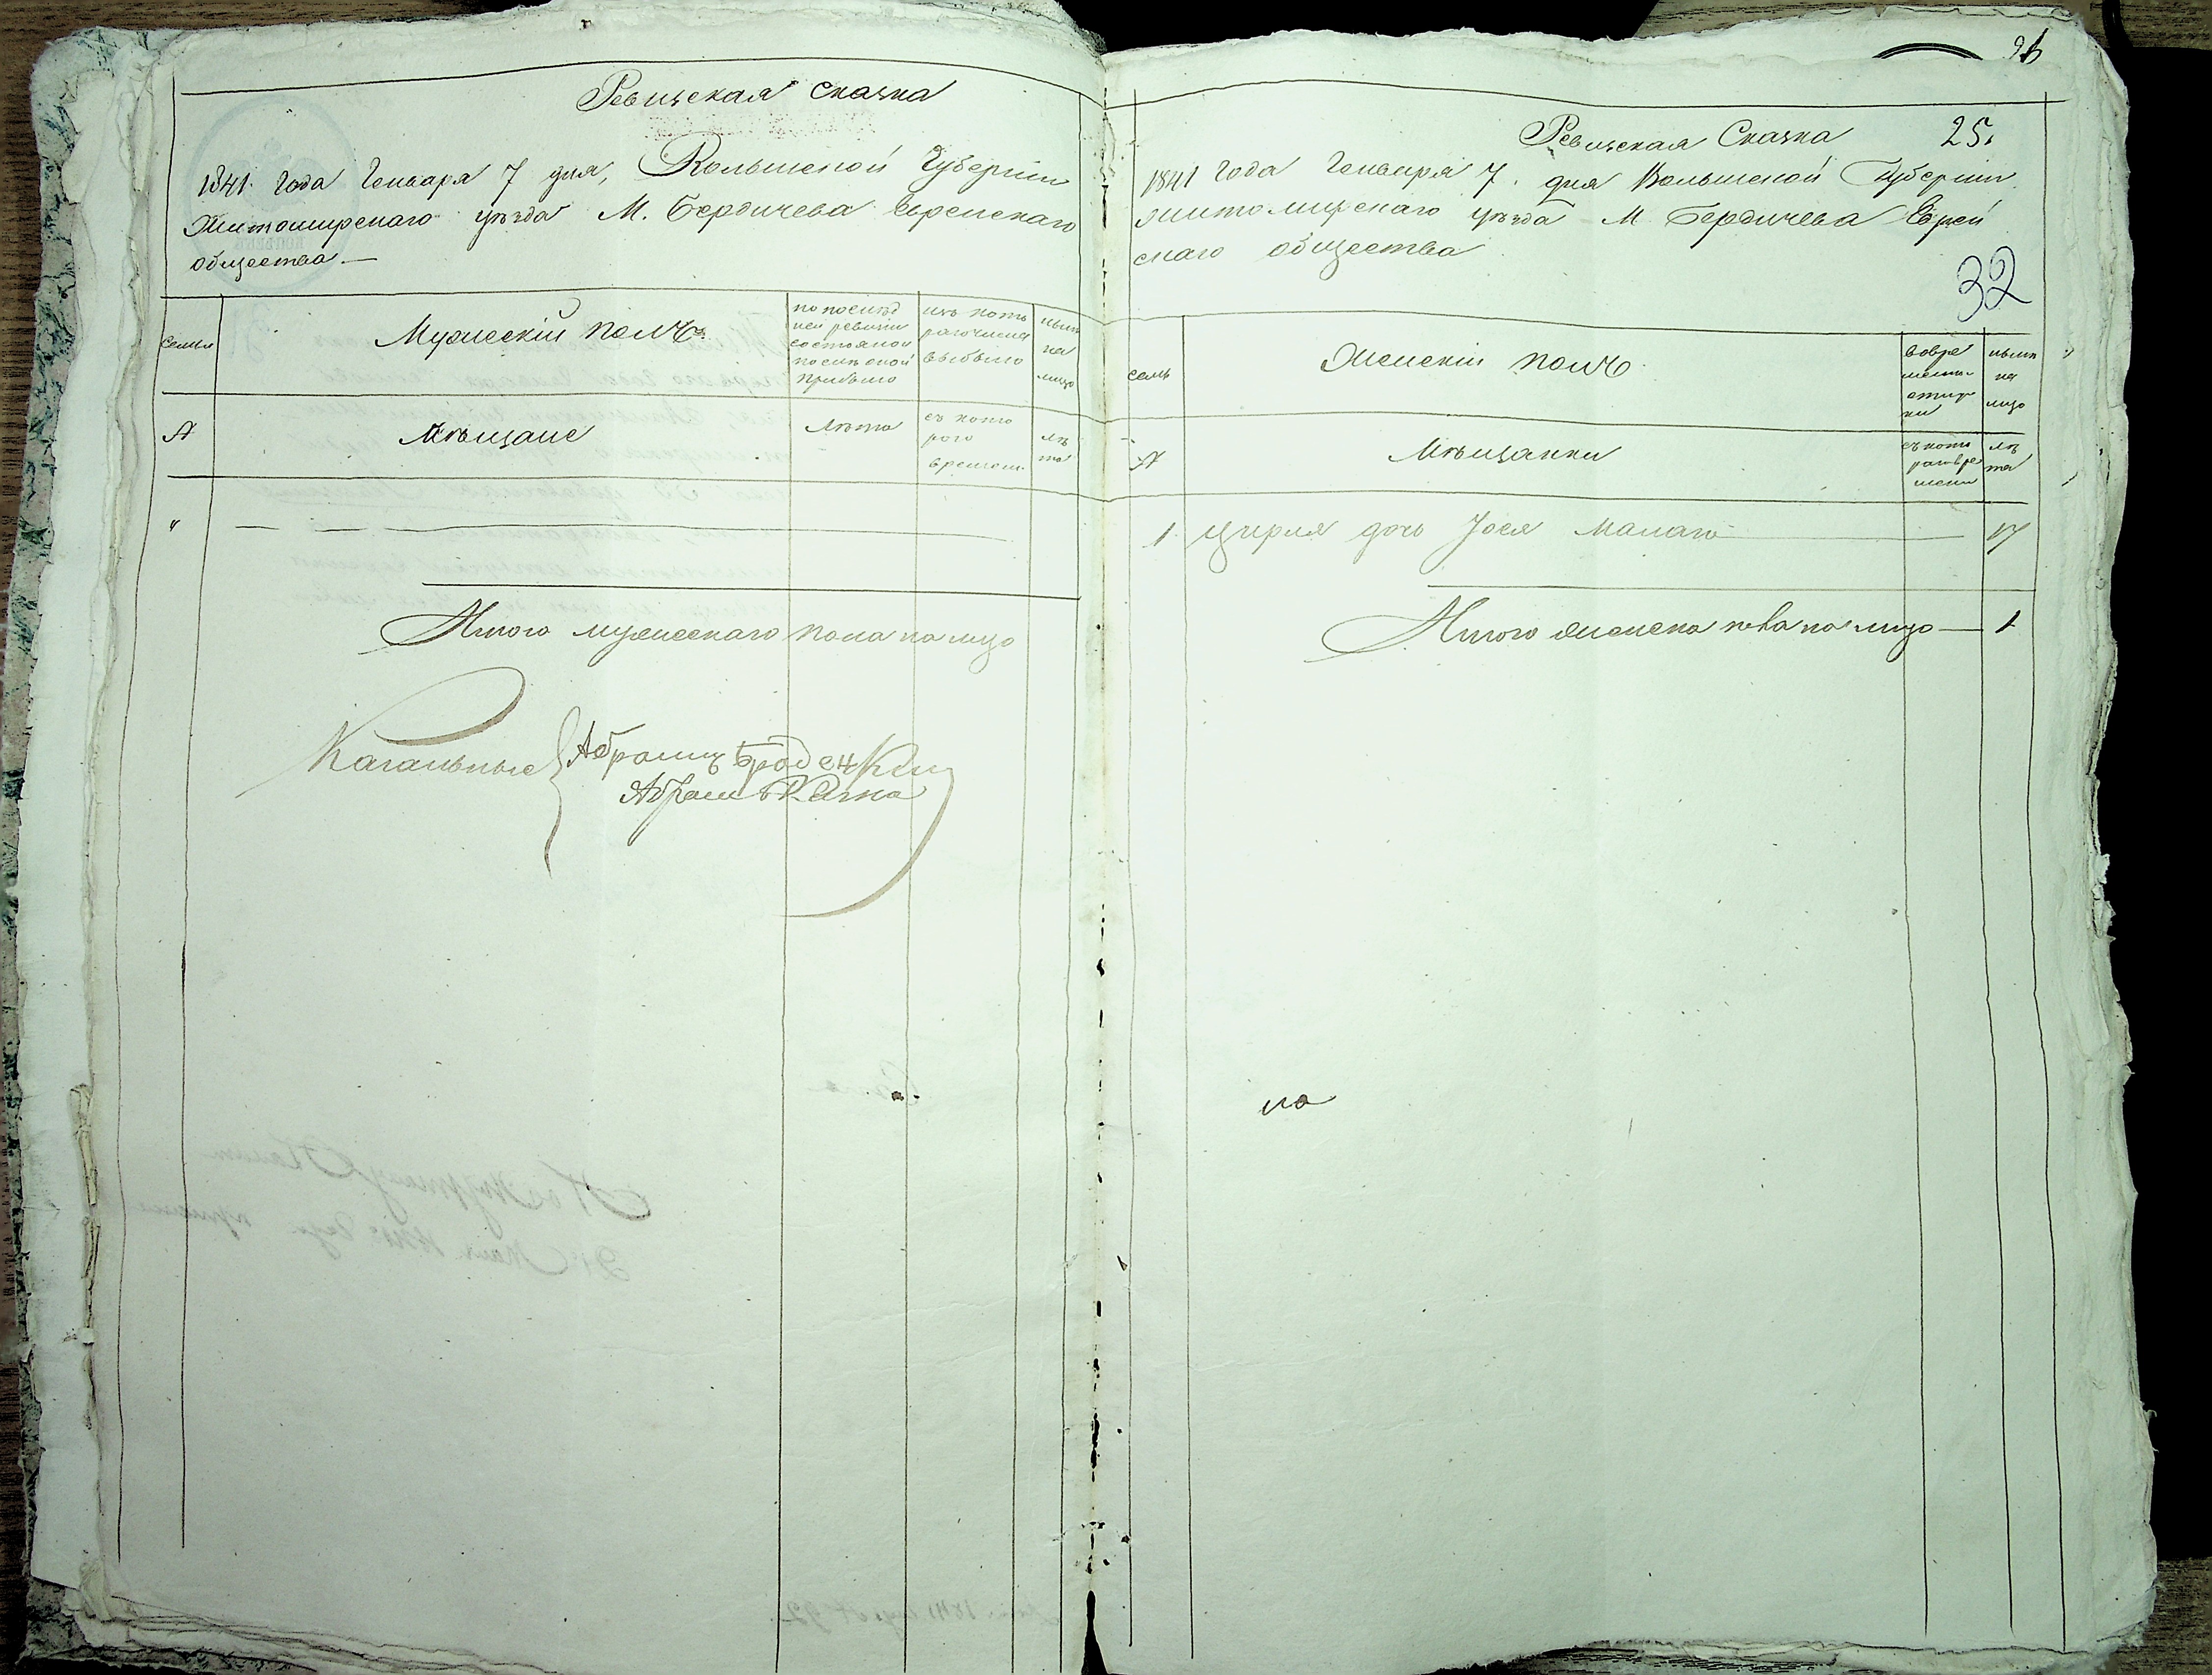 Ревизская Сказка
1841 года Генваря 7 дня, Волынской Губернии
Житомирскаго уезда М. Бердичева Еврейскаго
общества
семья
Мужескій полъ
по послед
ней ревизіи
состояло и
после оной
прибыло
изъ того
числа
выбыло
ныне
на
лицо
№
Мещане
Лета
съ кото
раго
времени
ле
та
"
Итого мужескаго пола на лицо
Кагальные
Абрамъ Бродскій
Абрамъ
96
Ревизская Сказка 25.
1841 года Генваря 7. дня Волынской Губерніи
Житомирскаго уезда М. Бердичева Еврей
скаго общества
32
семья
Женскій полъ
во вре
менной
отлуч
ке
ныне
на
лицо
№
Мещанки
съ кото
раго вре
мени
ле
та
1 Цирля дочь Иося Малаго 17
Итого женска пола на лицо — 1
на